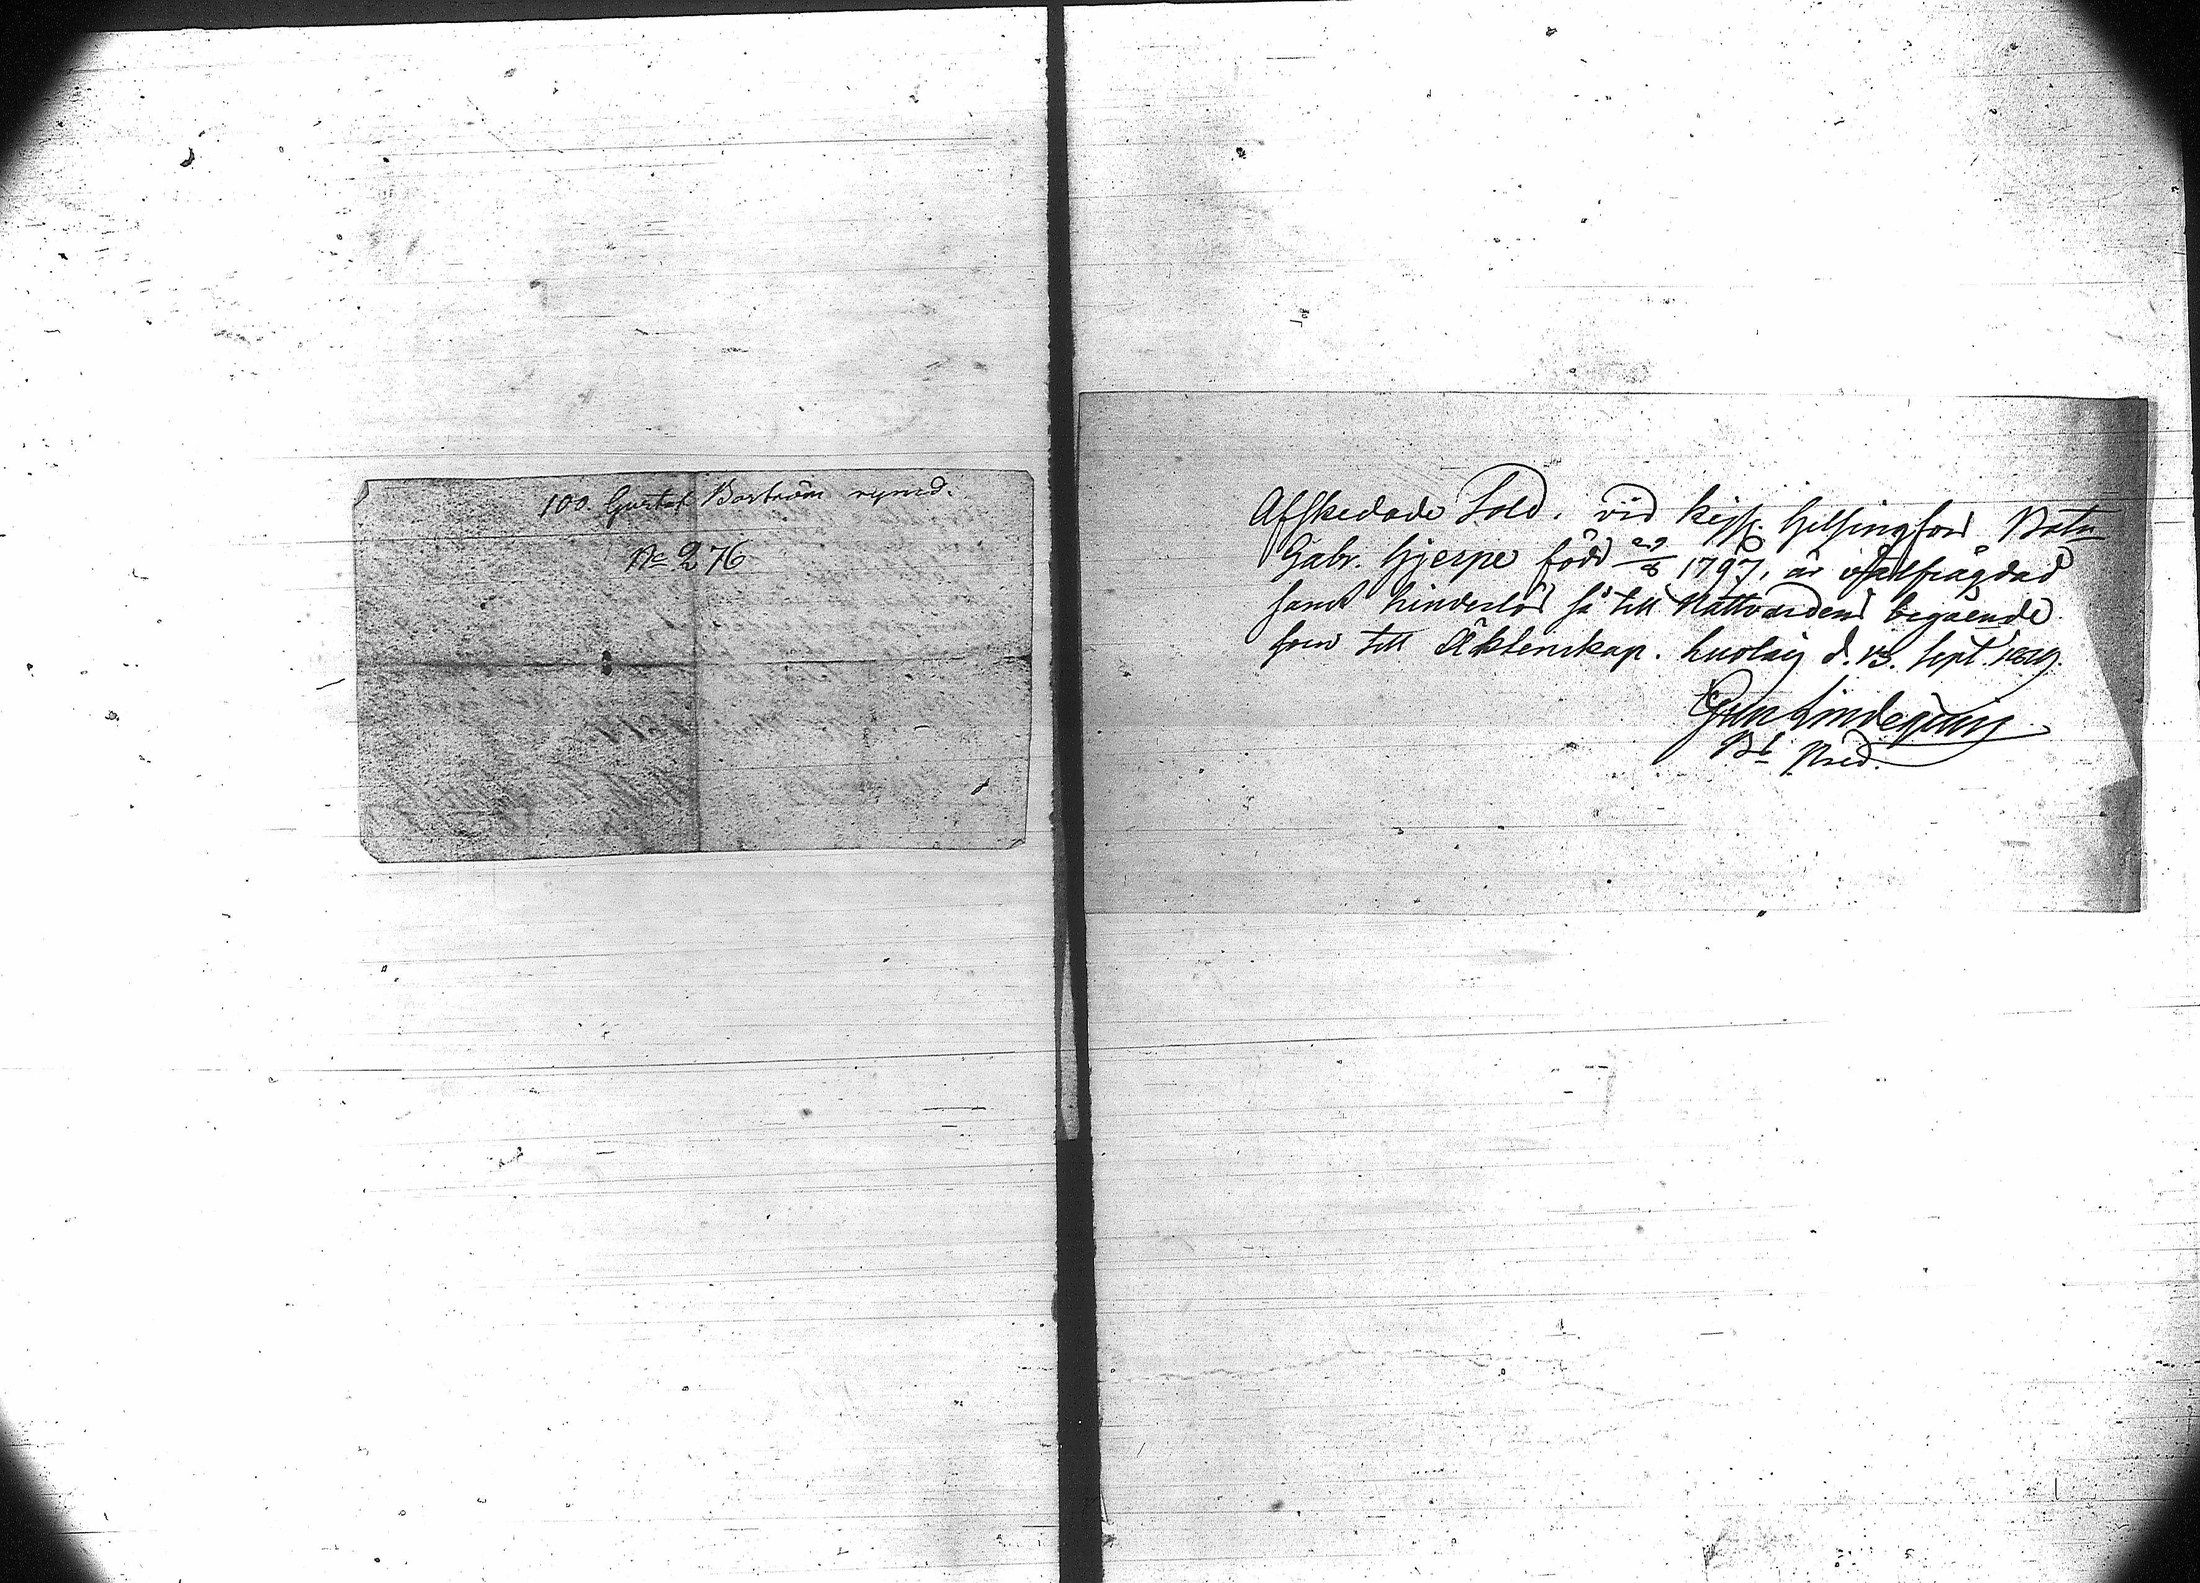 100. Gustaf Boström rymd.
No 276
Afskedade Sold. vid Kejs. Helsingfors Batn
Gabr. Hjerpe född 29/8 1797, är välfrägdad
samt hinderlös så till Nattvardens begående
som till Äktenskap. d. 13. Sept.
Lindeqvist
Bs Pred.